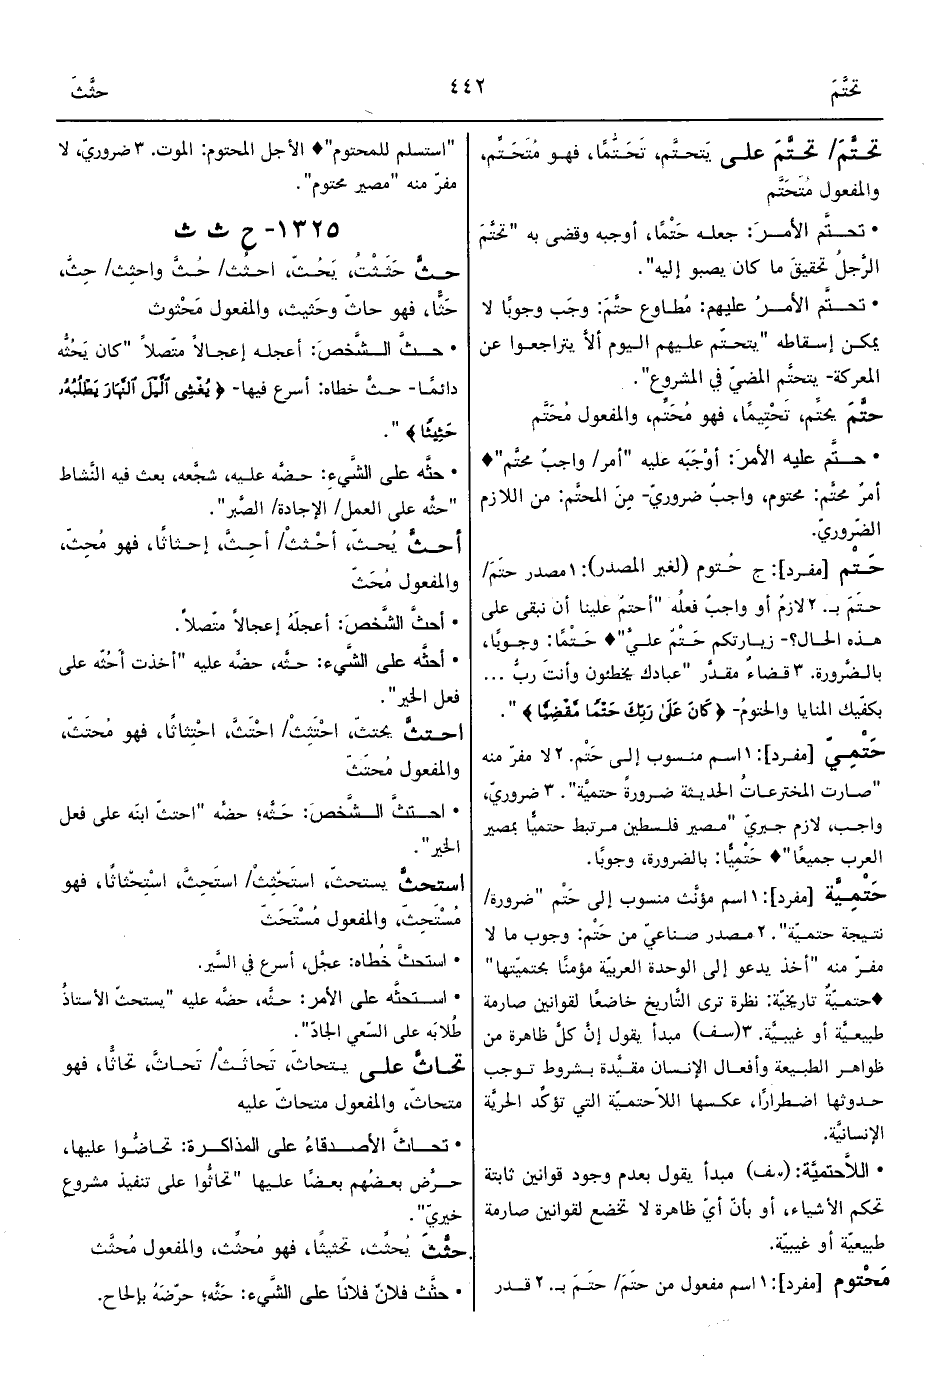 تحتَّمَ
٤٤٢
حثَّثَ
تحتَّمَ/ تحتَّمَ على يَتحتَّم، تَحَتُّمًا، فهو مُتَحَتِّم،
والمفعول مُتَحَتَّم
• تحتَّم الأمرَ: جعله حَتْمًا، أوجبه وقضى به "تحتَّمَ
الرَّجلُ تحقيقَ ما كان يصبو إليه".
• تحتَّم الأمرُ عليهم: مُطاوع حتَّمَ: وجَب وجوبًا لا
يمكن إسقاطه "يتحتّم عليهم اليوم ألاَّ يتراجعوا عن
المعركة- يتحتَّم المضيّ في المشروع".
حتَّمَ يحتِّم، تَحْتِيمًا، فهو مُحَتِّم، والمفعول مُحَتَّم
• حتَّم عليه الأمرَ: أوْجَبَه عليه "أمر/ واجبٌ محتَّم"♦
أمرٌ محتَّم: محتوم، واجبٌ ضروريّ- مِنَ المحتَّم: من اللازم
الضّروريّ.
حَتْم [مفرد]: ج حُتوم (لغير المصدر): ١ مصدر حتَمَ/
حتَمَ بـ. ٢ لازمٌ أو واجبٌ فعلُه "أحتمٌ علينا أن نبقى على
هذه الحال؟- زيارتكم حَتْمٌ عليَّ"♦ حَتْمًا: وجوبًا،
بالضَّرورة. ٣ قضاءٌ مقدَّر "عبادك يخطئون وأنت ربٌّ ...
بكفّيك المنايا والحتومُ- ﴿كَانَ عَلَىٰ رَبِّكَ حَتْمًا مَّقْضِيًّا﴾".
حَتْمِيّ [مفرد]: ١ اسم منسوب إلى حَتْم. ٢ لا مفرّ منه
"صارت المخترعاتُ الحديثة ضرورةً حتميَّة". ٣ ضروريّ،
واجب، لازم جبريّ "مصير فلسطين مرتبط حتميًّا بمصير
العرب جميعًا"♦ حَتْميًّا: بالضرورة، وجوبًا.
حَتْمِيَّة [مفرد]: ١ اسم مؤنَّث منسوب إلى حَتْم "ضرورة/
نتيجة حتميّة". ٢ مصدر صناعيّ من حَتْم: وجوب ما لا
مفرّ منه "أخذ يدعو إلى الوحدة العربيّة مؤمنًا بحتميّتها"
♦حتميَّةٌ تاريخيّة: نظرة ترى التَّاريخ خاضعًا لقوانين صارمة
طبيعيَّة أو غيبيَّة. ٣ (سف) مبدأ يقول إنَّ كلَّ ظاهرة من
ظواهر الطبيعة وأفعال الإنسان مقيَّدة بشروط توجب
حدوثها اضطرارًا، عكسها اللاَّحتميّة التي تؤكِّد الحريَّة
الإنسانيَّة.
• اللاَّحتميَّة: (سف) مبدأ يقول بعدم وجود قوانين ثابتة
تحكم الأشياء، أو بأنّ أيّ ظاهرة لا تخضع لقوانين صارمة
طبيعيّة أو غيبيّة.
مَحْتوم [مفرد]: ١ اسم مفعول من حتَمَ/ حتَمَ بـ. ٢ قدر
"استسلم للمحتوم"♦ الأجل المحتوم: الموت. ٣ ضروريّ، لا
مفرّ منه "مصير محتوم".
١٣٢٥- ح ث ث
حثَّ حَثَثْتُ، يَحُثّ، احثُثْ/ حُثَّ واحثِث/ حِثَّ،
حَثًّا، فهو حاثّ وحَثيث، والمفعول مَحْثوث
• حثَّ الشَّخصَ: أعجله إعجالاً متّصلاً "كان يَحُثّه
دائمًا- حثَّ خطاه: أسرع فيها- ﴿يُغْشِى ٱلَّيْلَ ٱلنَّهَارَ يَطْلُبُهُۥ
حَثِيثًا﴾".
• حثَّه على الشَّيءِ: حضَّه عليه، شجَّعه، بعث فيه النَّشاط
"حثَّه على العمل/ الإجادة/ الصَّبر".
أحثَّ يُحثّ، أَحْثثْ/ أحِثَّ، إحثاثًا، فهو مُحِثّ،
والمفعول مُحَثّ
• أحثَّ الشَّخصَ: أعجلَهُ إعجالاً متّصلاً.
• أحثَّه على الشَّيء: حثَّه، حضَّه عليه "أخذت أحُثّه على
فعل الخير".
احتثَّ يحتثّ، احْتَثِثْ/ احْتَثَّ، احْتِثاثًا، فهو مُحتَثّ،
والمفعول مُحتَثّ
• احتثَّ الشَّخصَ: حَثَّه؛ حضَّه "احتثّ ابنَه على فعل
الخير".
استحثَّ يستحثّ، استَحْثِثْ/ استَحِثَّ، استِحْثاثًا، فهو
مُسْتَحِثّ، والمفعول مُسْتَحَثّ
• استحثَّ خُطاه: عجَّل، أسرع في السَّير.
• استحثَّه على الأمر: حثَّه، حضَّه عليه "يستحثّ الأستاذُ
طُلابَه على السَّعي الجادّ".
تحاثَّ على يتحاثّ، تَحاثَثْ/ تَحاثَّ، تحاثًّا، فهو
متحاثّ، والمفعول متحاثّ عليه
• تحاثَّ الأصدقاءُ على المذاكرة: تحاضُّوا عليها،
حرَّضَ بعضُهم بعضًا عليها "تحاثُّوا على تنفيذ مشروع
خيريّ".
حثَّثَ يُحثِّث، تحثيثًا، فهو مُحثِّث، والمفعول مُحثَّث
• حثَّث فلانٌ فلانًا على الشَّيء: حثَّه؛ حرّضَهُ بإلحاح.